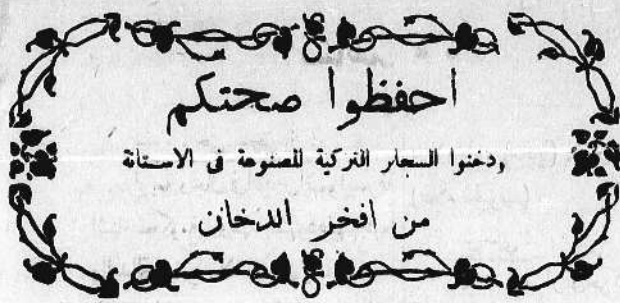 احفظوا صحتكم
ودخنوا السجار التركية المصنوعة فى الاستانة
من افخر الدخان.